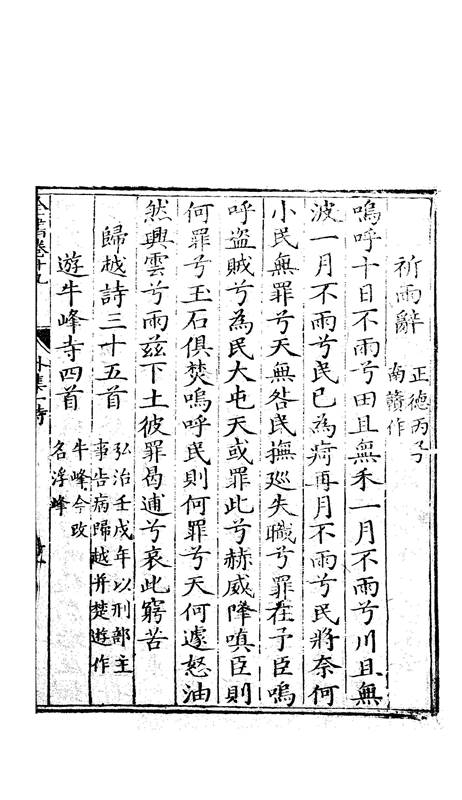 祈雨辭 正德丙子
南贛作
嗚呼十日不雨兮田且無禾一月不雨兮川且無
波一月不雨兮民已為痾再月不雨兮民將奈何
小民無罪兮天無咎民撫巡失職兮罪在予臣嗚
呼盜賊兮為民大屯天或罪此兮赫威降嗔臣則
何罪兮玉石俱焚嗚呼民則何罪兮天何遽怒油
然興雲兮雨茲下土彼罪曷逋兮哀此窮苦
歸越詩三十五首 弘治壬戌年以刑部主
事告病歸越并楚遊作
遊牛峰寺四首 牛峰今改
名浮峰
全書卷十九
外集一 詩